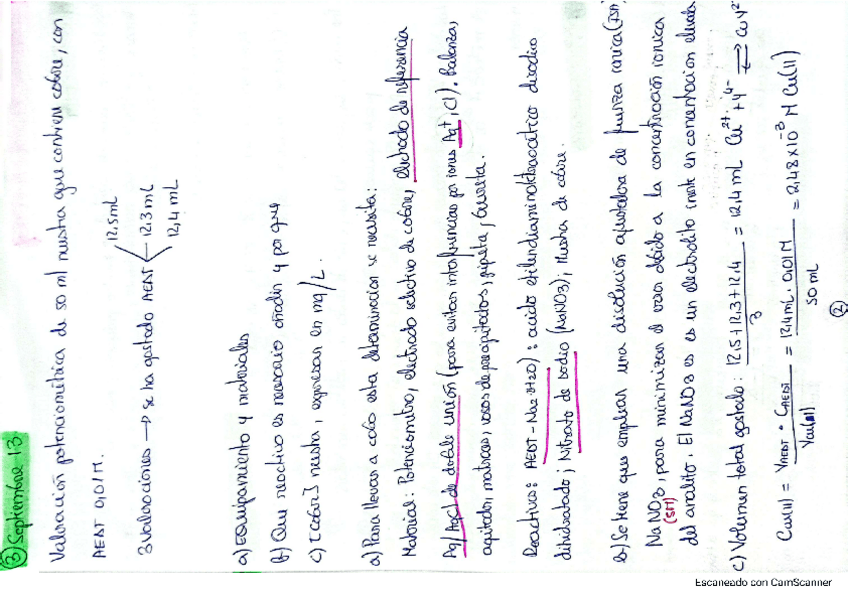 ③ Septiembre 13
Valoración potenciométrica de 50 ml muestra que contiene cobre, con
AEDT 0,01M.
12.5mL
3 valoraciones → se ha gastado AEDT 12.3 mL
12,4 mL
a) Equipamiento y materiales
b) Que reactivo es necesario añadir y por que
c) [Cobre] muestra, expresar en mg/L.
a) Para llevar a cabo esta determinacion se necesita:
Material: Potenciometro, electrodo selectivo de cobre, electrodo de referencia
Ag/AgCl de doble unión (para evitar interferencias por iones Ag+, Cl). Balanza,
agitador, matraces, vasos de precipitados, pipeta, bureta.
Reactivos: AEDT-Na2·2H2O): acido etilendiaminotetraacético disodico
dihidratado; Nitrato de sodio (NaNO3); Muestra de cobre.
b) Se tiene que emplear una disolución ajustadora de fuerza ionica (ISA)
NaNO3, para minimizar el error debido a la concentración ionica
(5M)
del analito. El NaNO3 es es un electrolito inerte en concentracion
c) Volumen total gastado: 12.5+12.3+12.4 / 3 = 12.4 mL Cu2+ + Y4- ⇌ CuY2-
Cu(II) = VAEDT · CAEDT / VCu(II) = 12,4mL · 0,01M / 50 mL = 2,48x10-3 M Cu(II)
②
Escaneado con CamScanner